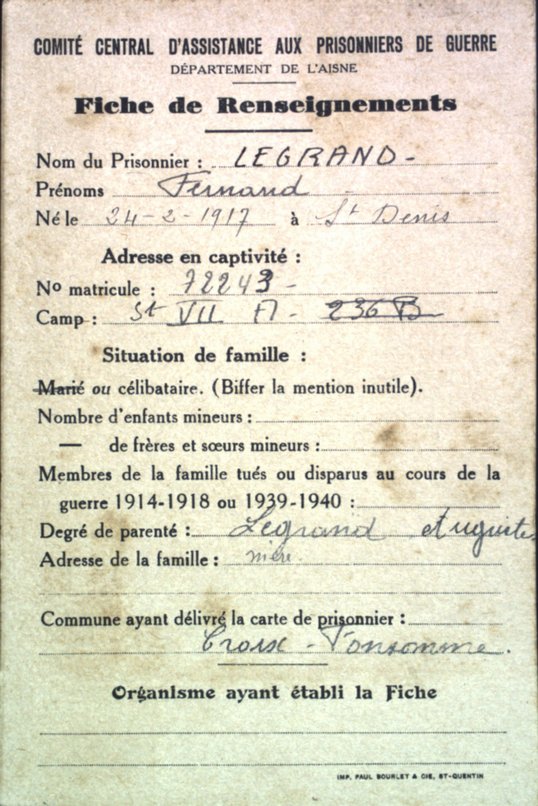 COMITÉ CENTRAL D'ASSISTANCE AUX PRISONNIERS DE GUERRE
DÉPARTEMENT DE L'AISNE
Fiche de Renseignements
Nom du Prisonnier : LEGRAND -
Prénoms Fernand
Né le 24-2-1917 à St Denis
Adresse en captivité :
No matricule : 72243 -
Camp : St VII A - 236 B
Situation de famille :
Marié ou célibataire. (Biffer la mention inutile).
Nombre d'enfants mineurs :
— de frères et sœurs mineurs :
Membres de la famille tués ou disparus au cours de la
guerre 1914-1918 ou 1939-1940 :
Degré de parenté : Legrand Auguste
Adresse de la famille : mère.
Commune ayant délivré la carte de prisonnier :
Croix - Fonsomme.
Organisme ayant établi la Fiche
IMP. PAUL BOURLET & CIE, ST-QUENTIN